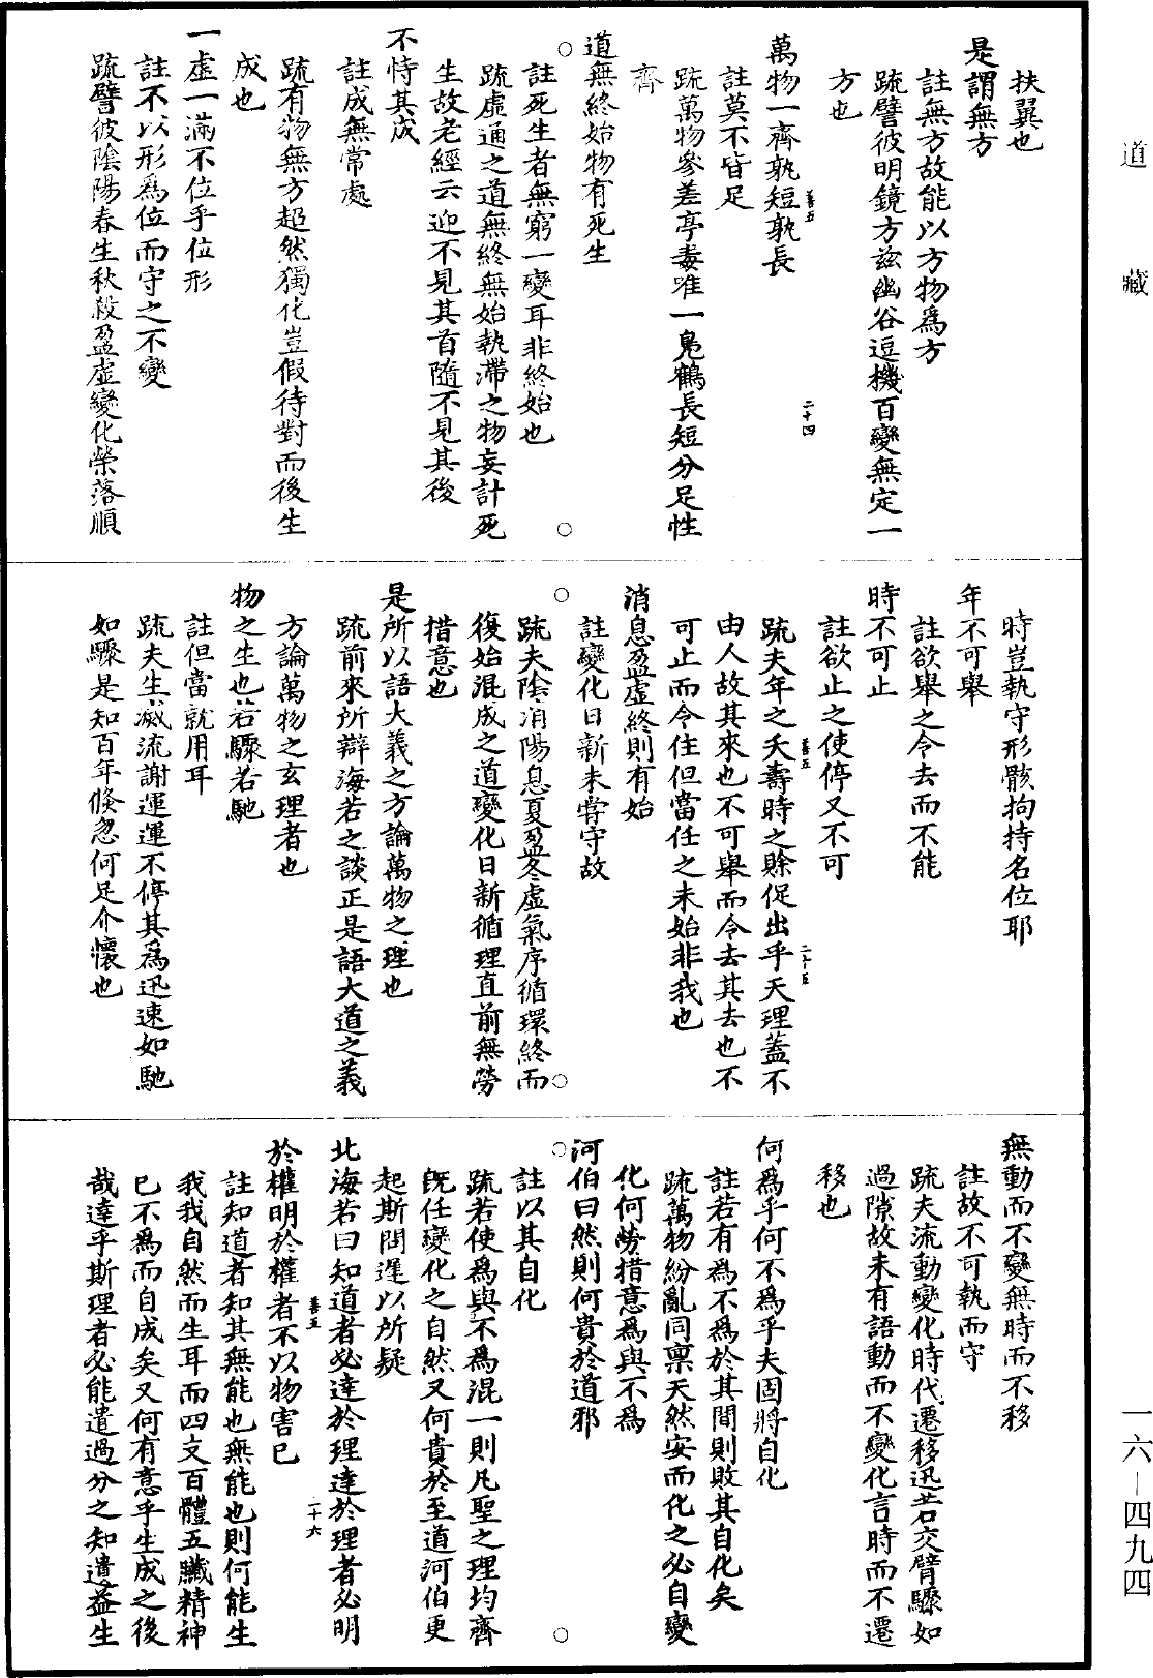 道藏
扶翼也
是謂無方
註無方故能以方物爲方
疏譬彼明鏡方兹幽谷逗機百變無定一
方也
善五
二十四
萬物一齊孰短孰長
註莫不皆足
疏萬物參差亭毒唯一鳧鶴長短分足性
齊
道無終始物有死生
註死生者無窮一變耳非終始也
疏虛通之道無終無始執滯之物妄計死
生故老經云迎不見其首隨不見其後
不恃其成
註成無常處
疏有物無方超然獨化豈假待對而後生
成也
一虛一滿不位乎位形
註不以形爲位而守之不變
疏譬彼陰陽春生秋殺盈虛變化榮落順
時豈執守形骸拘持名位耶
年不可舉
註欲舉之令去而不能
時不可止
註欲止之使停又不可
善五
二十五
疏夫年之夭壽時之賒促出乎天理蓋不
由人故其來也不可舉而令去其去也不
可止而令住但當任之未始非我也
消息盈虛終則有始
註變化日新未甞守故
疏夫陰消陽息夏盈冬虛氣序循環終而
復始混成之道變化日新循理直前無勞
措意也
是所以語大義之方論萬物之理也
疏前來所辯海若之談正是語大道之義
方論萬物之玄理者也
物之生也若驟若馳
註但當就用耳
疏夫生滅流謝運運不停其爲迅速如馳
如驟是知百年倏忽何足介懷也
無動而不變無時而不移
註故不可執而守
疏夫流動變化時代遷移迅若交臂驟如
過隙故未有語動而不變化言時而不遷
移也
何爲乎何不爲乎夫固將自化
註若有爲不爲於其間則敗其自化矣
疏萬物紛亂同禀天然安而化之必自變
化何勞措意爲與不爲
河伯曰然則何貴於道邪
註以其自化
疏若使爲與不爲混一則凡聖之理均齊
旣任變化之自然又何貴於至道河伯更
起斯問遲以所疑
北海若曰知道者必達於理達於理者必明
善五
二十六
於權明於權者不以物害已
註知道者知其無能也無能也則何能生
我我自然而生耳而四支百體五臟精神
已不爲而自成矣又何有意乎生成之後
哉達乎斯理者必能遣過分之知遺益生
一六—四九四